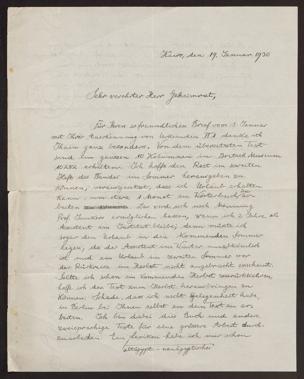 Kairo, den 19. Januar 1930
Sehr verehrter Herr Geheimrat,
Für Ihren so freundlichen Brief vom 8. Januar
mit Ihrer Anerkennung von Urkunden IV danke ich
Ihnen ganz besonders. Von dem übersetzten Text
sind im ganzen 10 Kolumnen im British Museum
erhalten. Ich hoffe den Rest im zweiten
Hefte des Bandes im Sommer herausgeben zu
können, vorausgesetzt, dass ich Urlaub erhalten
kann, um etwa 1 Monat am Wörterbuch zu ar-
beiten. Das wird sich nach Meinung
Prof. Junkers ermöglichen lassen, wenn ich 2 Jahre als
Assistent am Institut bleibe; denn müsste ich
sogar den Urlaub in den kommenden Sommer
legen, da der Assistent im Winter unabkömmlich
ist und ein Urlaub im zweiten Sommer vor
der Rückreise im Herbst nicht angebracht erscheint.
Sollte ich schon im kommenden Herbst zurückkehren,
hoffe ich den Text zum Herbst herausbringen zu
können. Schade, dass ich nicht Gelegenheit habe,
in Berlin bei Ihnen selbst an dem Text zu ar-
beiten. Ich bin dabei dies Buch und andere
zweisprachige Texte für eine grössere Arbeit durch-
zuarbeiten. Ein Lexikon habe ich mir schon
altägypt.-neuägyptisches